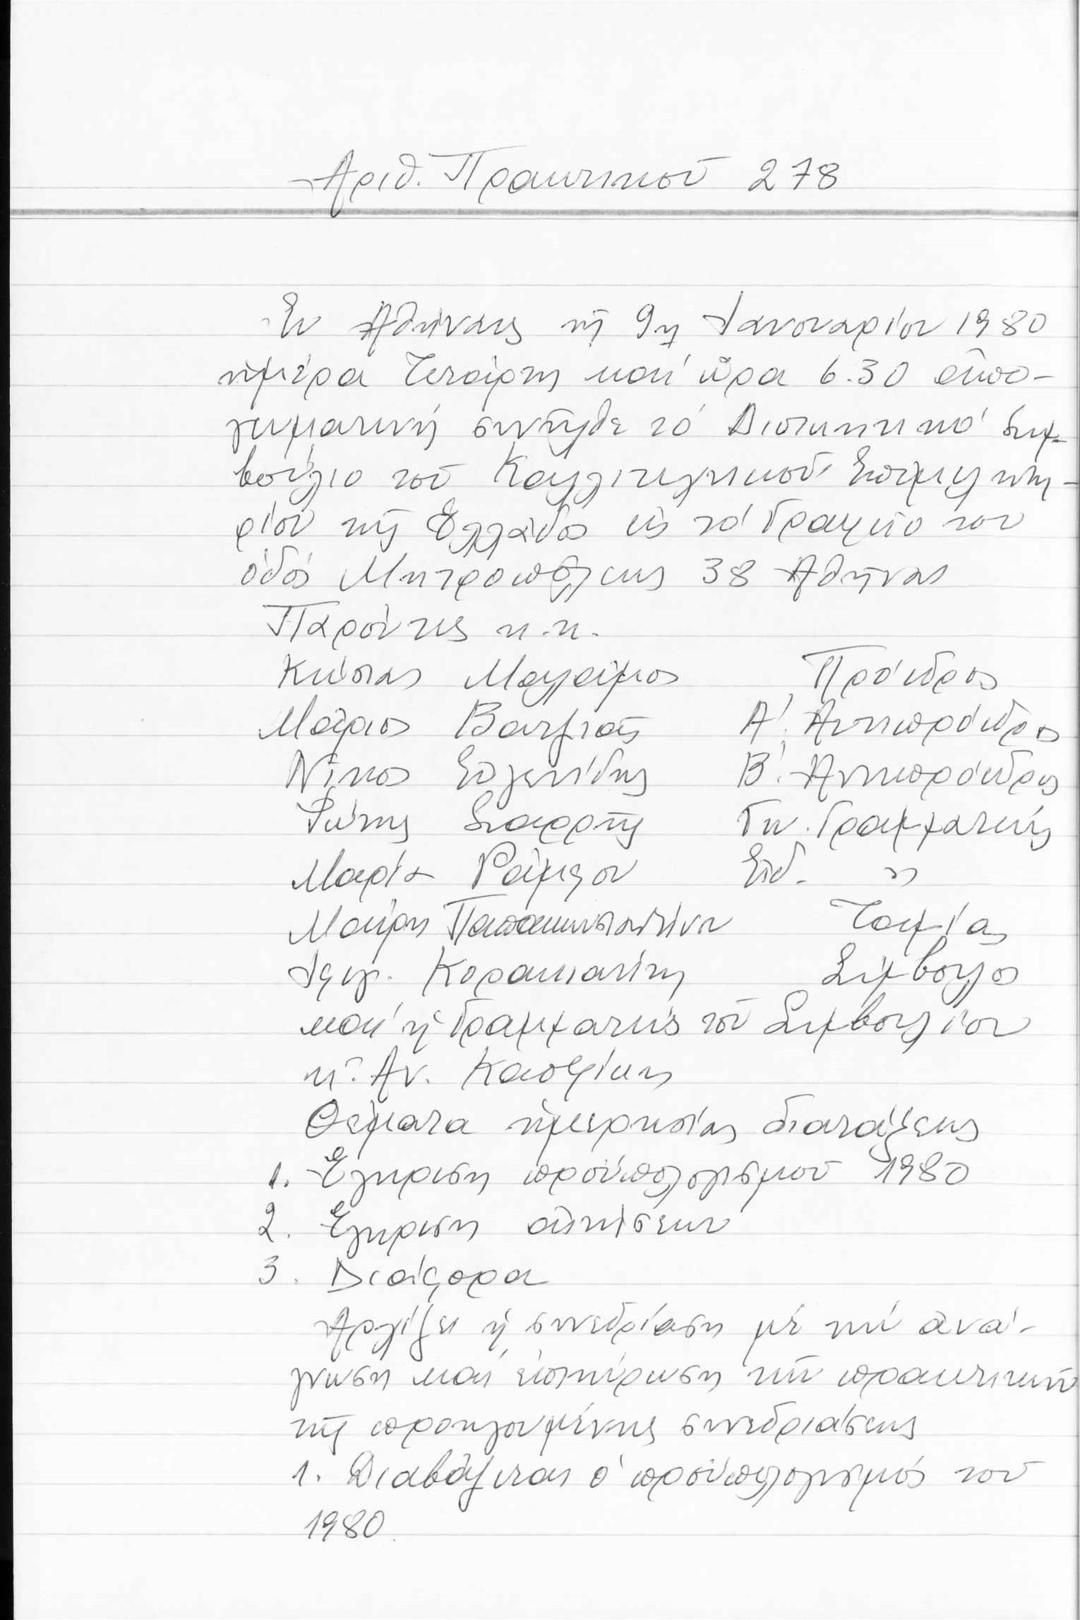 Ἀριθ. Πρακτικοῦ 278
Ἐν Ἀθήναις τῇ 9ῃ Ἰανουαρίου 1980
ἡμέρα Τετάρτη καί ὥρα 6.30 ἀπο-
γευματινή συνῆλθε τό Διοικητικό Συμ-
βούλιο τοῦ Καλλιτεχνικοῦ Ἐπιμελητη-
ρίου τῆς Ἑλλάδος εἰς τά Γραφεῖα του
ὁδός Μητροπόλεως 38 Ἀθήνας
Παρόντες κ.κ.
Κώστας Μαλάμος Πρόεδρος
Μάριος Βατζιᾶς Α΄. Ἀντιπρόεδρος
Νίκος Εὐγενίδης Β΄. Ἀντιπρόεδρος
Φώτης Σιαρρῆς Γεν. Γραμματεύς
Μαρία Ράμφου Εἰδ. "
Μαίρη Παπακωνσταντίνου Ταμίας
Κορακιανίτης Σύμβουλος
καί ἡ Γραμματεύς τοῦ Συμβουλίου
κ. Αν. Καστρίτη
Θέματα ἡμερησίας διατάξεως
1. Ἔγκριση προϋπολογισμοῦ 1980
2. Ἔγκριση αἰτήσεων
3. Διάφορα
Ἀρχίζει ἡ συνεδρίαση μέ τήν ἀνά-
γνωση καί ἐπικύρωση τῶν πρακτικῶν
τῆς προηγουμένης συνεδριάσεως
1. Διαβάζεται ὁ προϋπολογισμός τοῦ
1980.